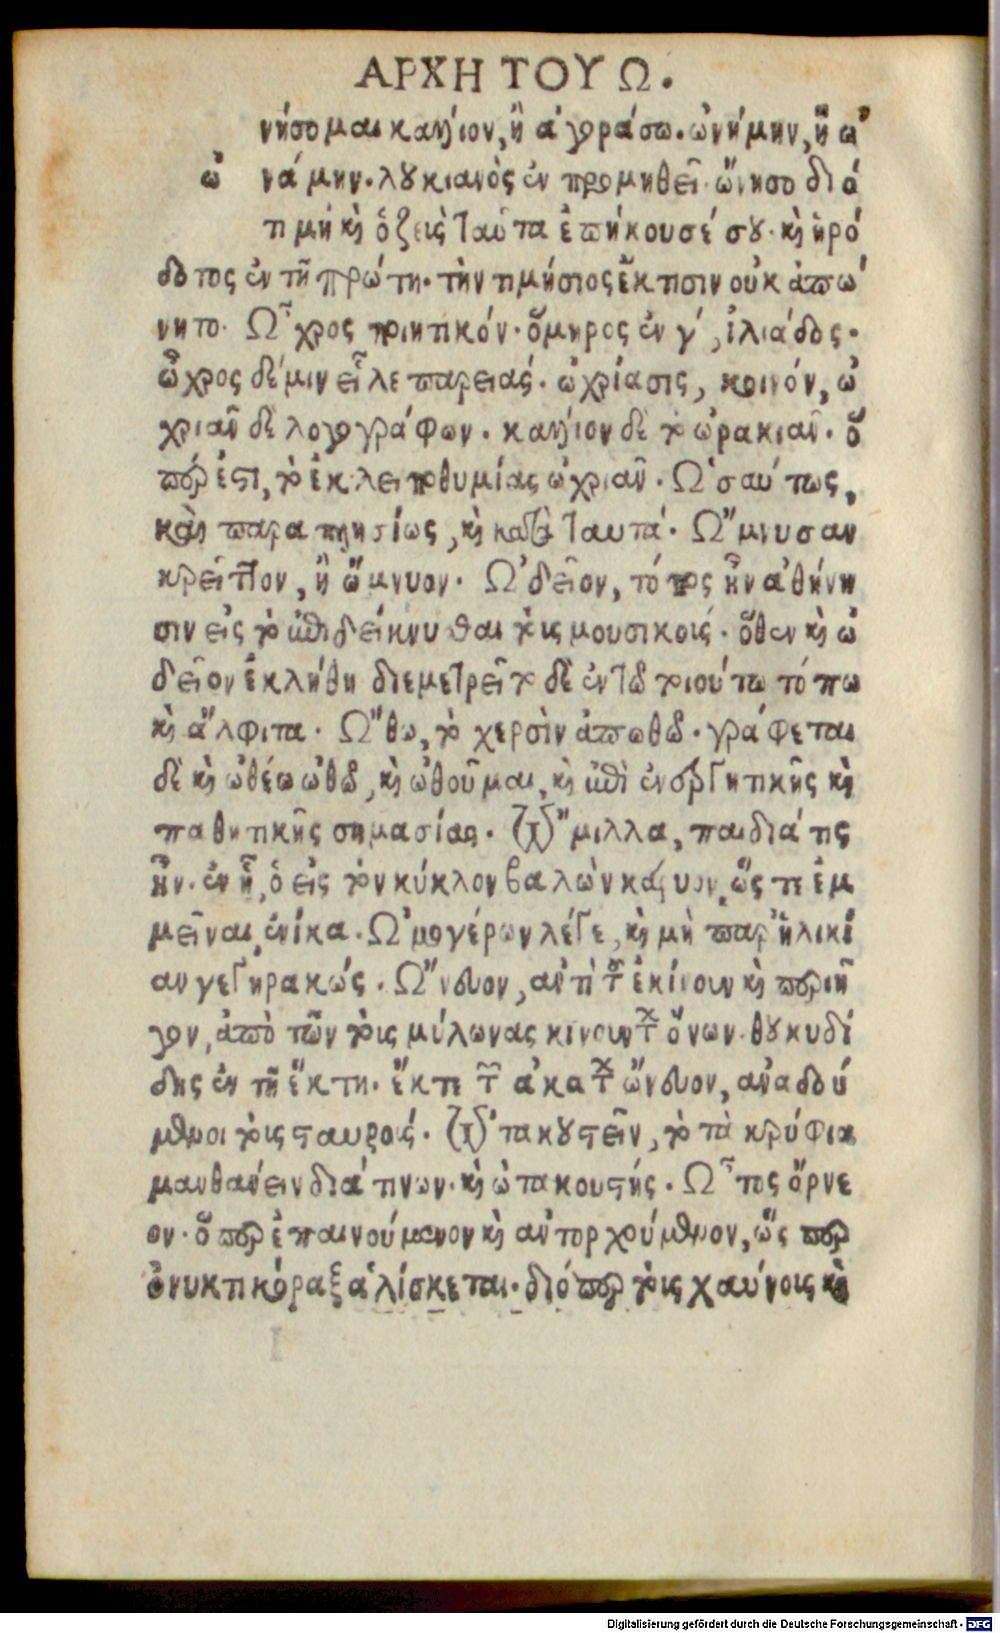 ΑΡΧΗ ΤΟΥ Ω.
νήσομαι κάλλιον, ἢ ἀγοράσω. ὠνήμην, ἢ ὠ
ὠ νάμην. λουκιανὸς ἐν προμηθεῖ. ὤνησο διό
τι μὴ καὶ ὁ ζεὺς ταῦτα ἐπήκουσέ σου. καὶ ἡρό
δοτος ἐν τῇ πρώτῃ. τὴν τιμήσιος ἔκτισιν οὐκ ἀπώ
νητο. Ὦχρος ποιητικόν. ὅμηρος ἐν γ', ἰλιάδος.
ὦχρος δέ μιν εἷλε παρειάς. ὠχρίασις, κοινόν, ὠ
χριᾶν δὲ λογογράφων. κάλλιον δὲ τὸ ὠρακιᾶν. ὅ
περ ἐστὶ, τὸ ἐκ λειποθυμίας ὠχριᾶν. Ὡσαύτως,
καὶ παραπλησίως, καὶ κατὰ ταυτά. Ὤμνυσαν
κρεῖττον, ἢ ὤμνυον. Ὠδεῖον, τόπος ἦν ἀθήνη
σιν εἰς τὸ ἐπιδείκνυσθαι τοὶς μουσικοὶς. ὅθεν καὶ ὠ
δεῖον ἐκλήθη διεμετρεῖτο δὲ ἐν τῶ τοιούτω τόπω
καὶ ἄλφιτα. Ὤθω, τὸ χερσὶν ἀπωθῶ. γράφεται
δὲ καὶ ὠθέω ὠθῶ, καὶ ὠθοῦμαι, καὶ ἐπὶ ἐνεργητικῆς καὶ
παθητικῆς σημασίας. Ὤμιλλα, παιδιά τις
ἦν. ἐν ἧ, ὁ εἰς τὸν κύκλον βαλὼν κάρυον, ὥς τε ἐμ
μεῖναι, ἐνίκα. Ὠμογέρων λέγε, καὶ μὴ παρ' ἡλικί
αν γεγηρακώς. Ὤνευον, ἀντὶ τοῦ ἐκίνουν καὶ περιῆ
γον, ἀπὸ τῶν τοὺς μύλωνας κινούντων ὄνων. θουκυδί
δης ἐν τῇ ἕκτῃ. ἔκ τε τῶν ἀκάτων ὤνευον, ἀναδού
μενοι τοὺς σταυρούς. Ὠτακουστεῖν, τὸ τὰ κρύφια
μανθάνειν διά τινων. καὶ ὠτακουστής. Ὦτος ὄρνε
ον. ὅπερ ἐπαινούμενον καὶ ἀντορχούμενον, ὥς περ
ὀνυκτικόραξ ἁλίσκεται. διόπερ τοὺς χαύνοις καὶ
Digitalisierung gefördert durch die Deutsche Forschungsgemeinschaft - DFG